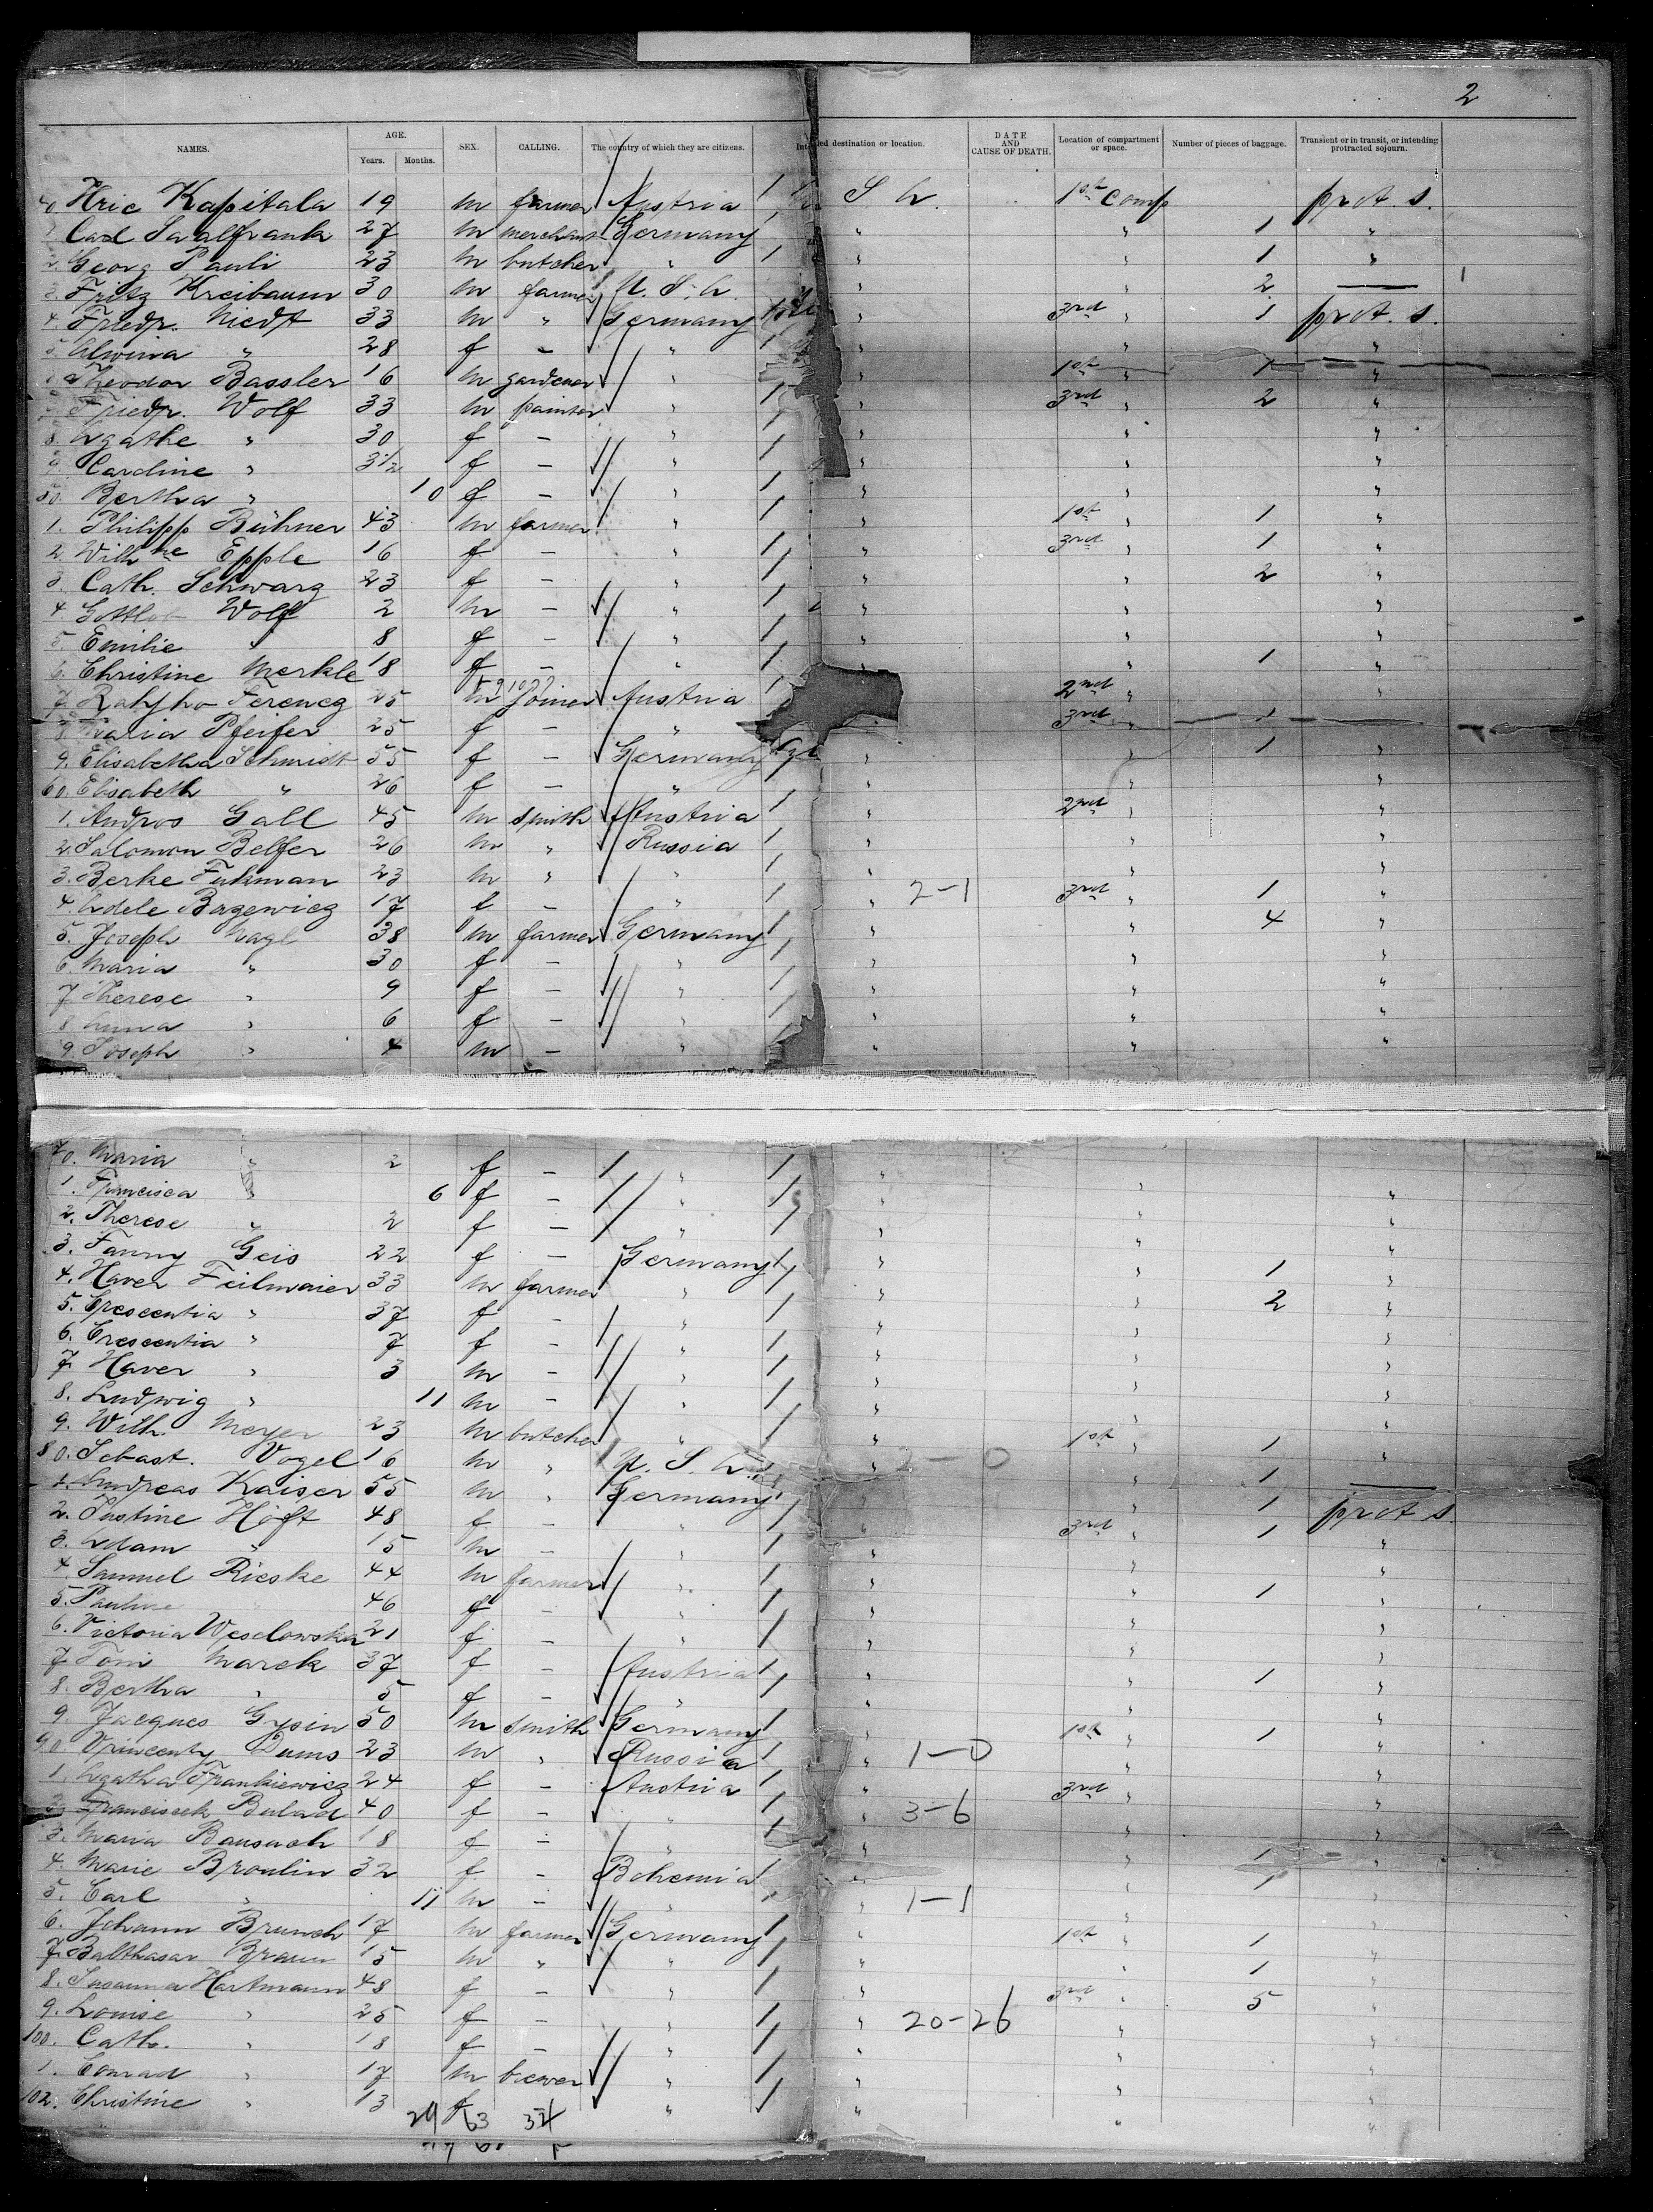 2
NAMES. AGE. Years. Months. SEX. CALLING. The country of which they are citizens. Intended destination or location. DATE AND CAUSE OF DEATH. Location of compartment or space. Number of pieces of baggage. Transient or in transit, or intending protracted sojourn.
40. Hric Kapitala 19 m farmer Austria 1st comp prot. s.
1. Carl Saalfrank 27 m merchant Germany " " 1 "
2. Georg Pauli 23 m butcher " " " 1 "
3. Fritz Kreibaum 30 m farmer U.S.A. " " 2 —
4. Friedr. Niedt 33 m " Germany " 3rd " 1 prot. s.
5. Alwina " 28 f – " " " "
6. Theodor Bassler 16 m gardener " " 1st " 1 "
7. Friedr. Wolf 33 m painter " " 3rd " 2 "
8. Agathe " 30 f – " " " "
9. Caroline " 3 1/2 f – " " " "
50. Bertha " 10 f – " " " "
1. Philipp Bühner 43 m farmer " " 1st " 1 "
2. Wilhne Epple 16 f – " " 3rd " 1 "
3. Cath. Schwarz 23 f – " " " 2 "
4. Gottlob Wolf 2 m – " " " "
5. Emilie " 8 f – " " " "
6. Christine Merkle 18 f – " " " 1 "
7. Ferencz 25 m joiner Austria 2nd "
8. Maria Pfeifer 25 f – " " 3rd " 1
9. Elisabetha Schmidt 55 f – Germany " " 1 "
60. Elisabeth " 26 f – " " " "
1. Andros Gall 45 m smith Austria " 2nd " "
2. Salomon Belfer 26 m " Russia " " "
3. Berke Fukman 23 m " " " " "
4. Adele Bazewicz 17 f – " " 2-1 3rd " 1 "
5. Joseph Nagl 38 m farmer Germany " " 4 "
6. Maria " 30 f – " " " "
7. Therese " 9 f – " " " "
8. Anna " 6 f – " " " "
9. Joseph " 4 m – " " " "
70. Maria " 2 f – " "
1. Francisca " 6 f – " " " "
2. Therese " 2 f – " " " "
3. Fanny Geis 22 f – Germany " " 1 "
4. Xaver Feilmaier 33 m farmer " " " 2 "
5. Crescentia " 37 f – " " " "
6. Crescentia " 7 f – " " " "
7. Xaver " 3 m – " " " "
8. Ludwig " 11 m – " " " "
9. Wilh. Meyer 23 m butcher " " 1st " 1 "
80. Sebast. Vogel 16 m " U.S.A. " 2-0 " 1 —
1. Andreas Kaiser 55 m " Germany " 1 prot s.
2. Justine Höft 48 f – " " 3rd " 1 "
3. Adam " 15 m – " " " "
4. Samuel Rieske 44 m farmer " " " 1 "
5. Pauline 46 f – " " " "
6. Victoria Wesclowska 21 f – " " " "
7. Toni Marek 37 f – Austria " " 1 "
8. Bertha " 5 f – " " " "
9. Jacques Gysin 50 m smith Germany " 1st " 1 "
90. Vpincenty Dums 23 m " Russia " 1-0 " "
1. Agatha Frankiewicz 24 f – Austria " 3rd " "
2. Franciscek Bulad 40 f – " " 3-6 " "
3. Maria 18 f – " " " 1 "
4. Marie Broulin 32 f – Bohemia " " 1 "
5. Carl " 11 m – " " 1-1 " "
6. Johann Brunch 17 m farmer Germany " 1st " 1 "
7. Balthasar Braun 15 m " " " " 1 "
8. Susanna Hartmann 48 f – " " 3rd " 5 "
9. Louise " 25 f – " " 20-26 " "
100. Cath. " 18 f – " " " "
1. Conrad " 17 m " " " "
102. Christine " 13 f " " " "
29 63 34